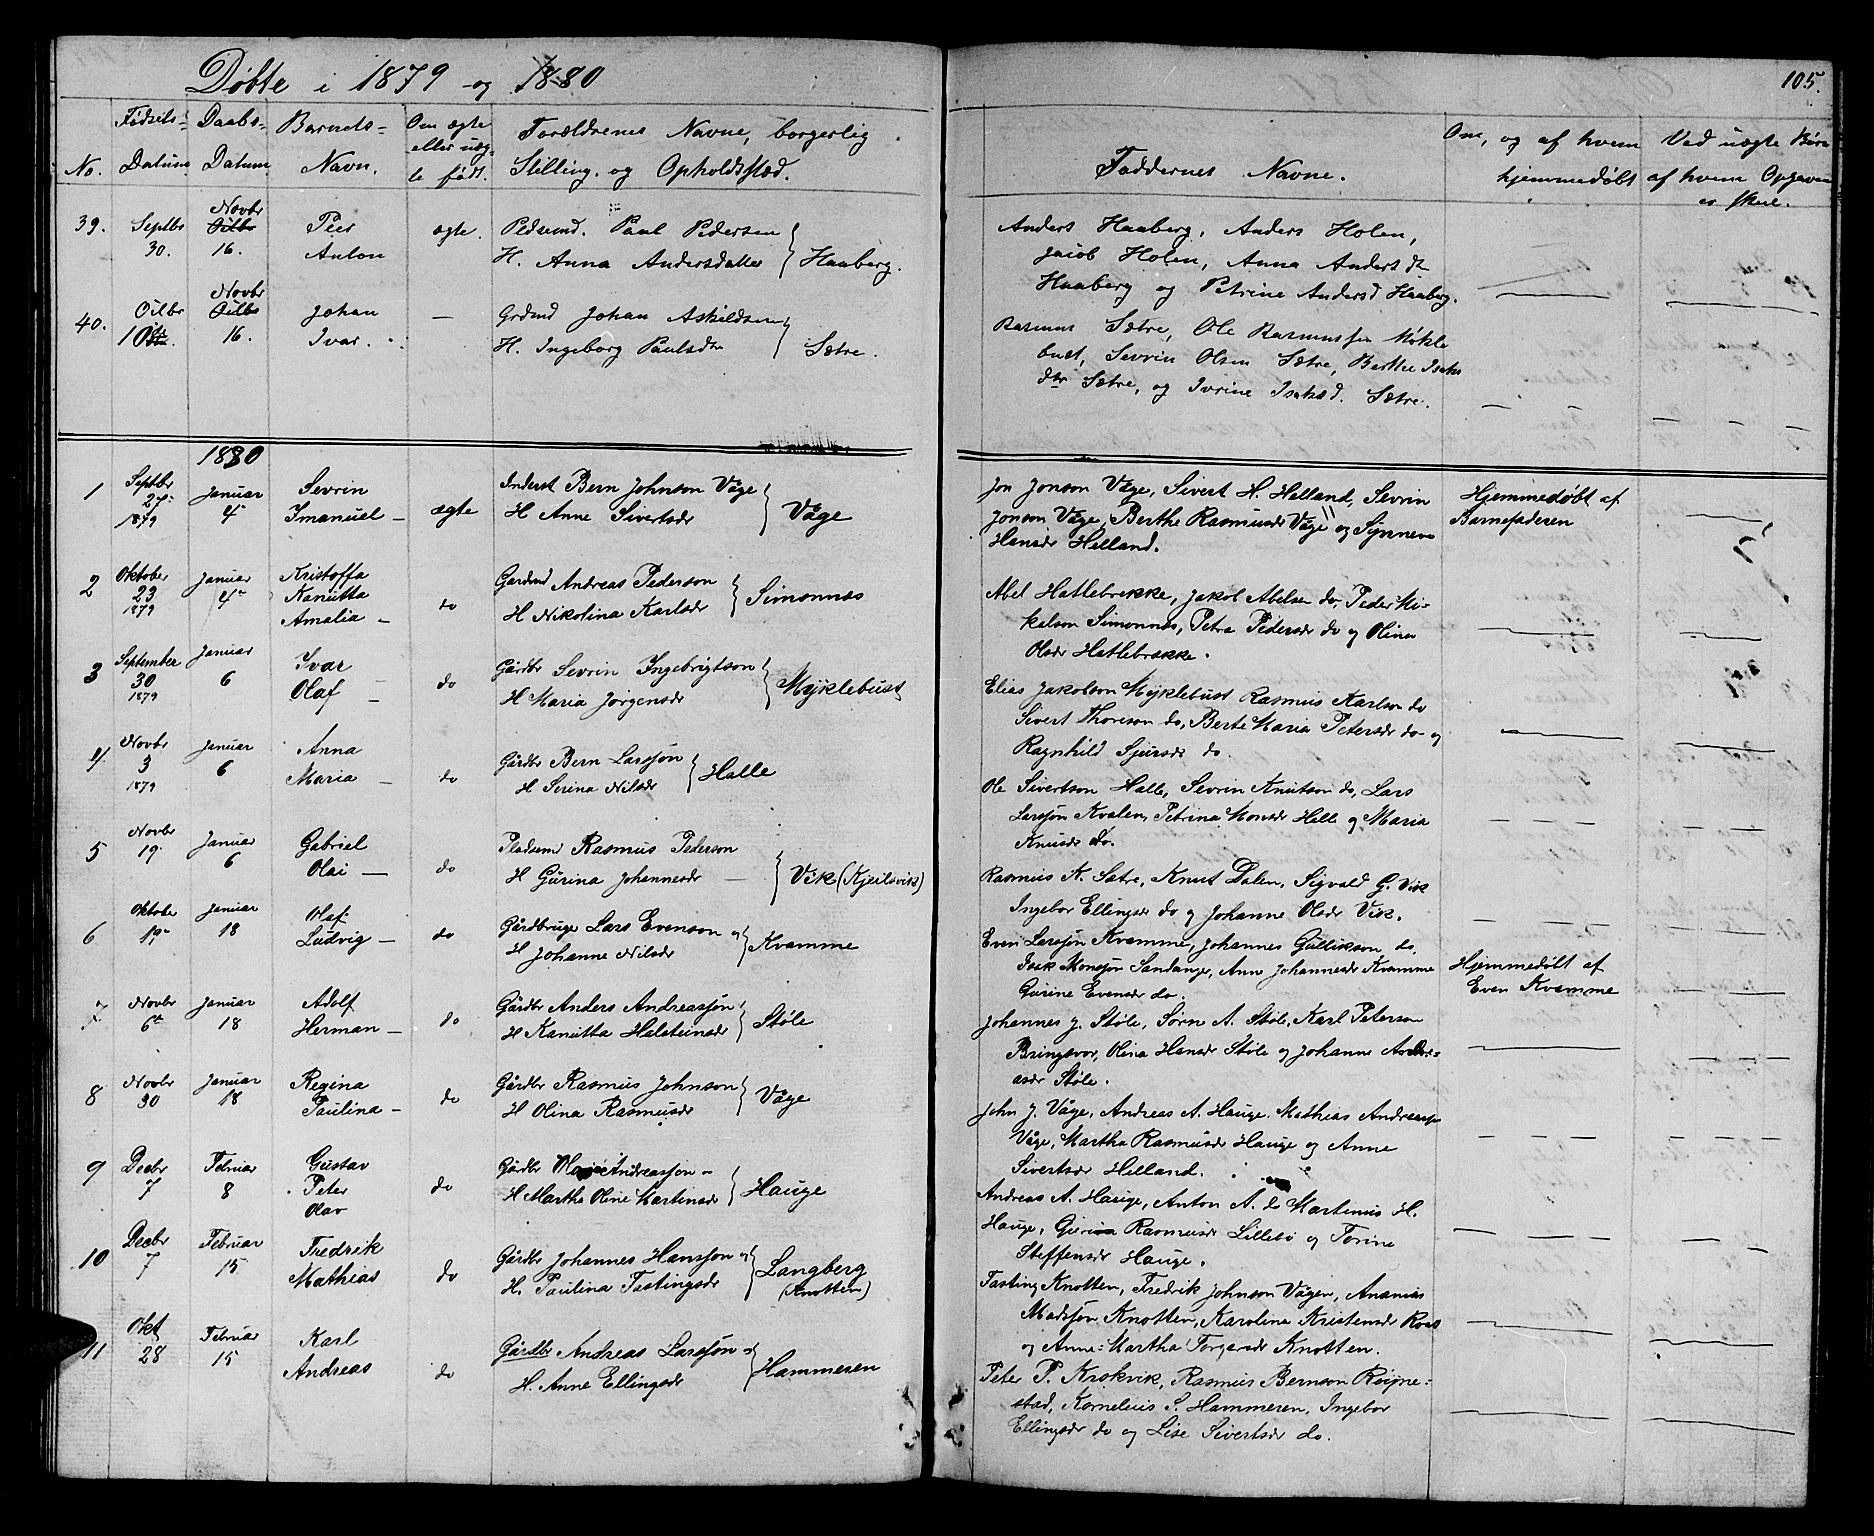 Døbte i 1879 og 1880
105.
No.
Fødsels-
Datum
Daabs-
Datum
Barnets-
Navn.
Om ægte
eller uæg-
te født.
Forældrenes Navne, borgerlig
Stilling. og Opholdsstæd.
Faddernes Navne.
Om, og af hvem
hjemmedøbt
Ved uægte Børn
af hvem Opgaven
er skeet.
39.
Septbr
30.
Novbr
Oitbr
16.
Peer
Anton
ægte.
Pedersen
Paul
H. Anna Andersdatter
Haaberg.
Anders Haaberg, Anders Holen,
Jacob Holen, Anna Anders dtr
Haaberg og Petrine Andersd Haaberg.
40.
Oitbr
10
Novbr
Oitbr
16.
Johan
Ivar.
—
Grdmd Johan Askildsen
H. Ingeborg Paulsdtr
Sætre.
Rasmus Sætre, Ole Rasmussen Mykle
bust, Sevrin Olsen Sætre, Berthe Isaks
dtr Sætre, og Ivrine Isaksd. Sætre.
1880
1
Septbr
27
1879
Januar
4
Sevrin
Imanuel —
ægte
Inderst Bern Johnson Våge
H Anne Sivertsdr
Våge
Jon Jonson Våge, Sivert H. Helland, Sevrin
Jonson Våge, Berthe Rasmusdr Våge og Synneva
Hansdr Helland.
Hjemmedøbt af
Barnefaderen
2
Oktober
23
1879
Januar
4
Kristoffa
Kanutta
Amalia —
do
Gardmd Andreas Pederson
H Nikolina Karlsdr
Simonnes
Abel Hatlebrekke, Jakob Abelsen do, Peder Mi-
kelson Simonnæs, Petra Pedersdr do og Olina
Olsdr Hatlebrekke.
3
September
30
1879
Januar
6
Ivar
Olaf —
do
Gårdbr Sevrin Ingebrigtson
H Maria Jørgensdr
Myklebust
Elias Jakobson Myklebust Rasmus Karlson do
Sivert Thoreson do, Berte Maria Petersdr do og
Ragnhild Sjursdr do
4
Novbr
3
1879
Januar
6
Anna
Maria —
do
Gårdbr Bern Larssøn
H Serina Nilsdr
Halle
Ole Sivertson Halle, Sevrin Knutson do, Lars
Larssøn Kvalen, Petrina Monsdr Helle og Maria
Knusdr do.
5
Novbr
19
Januar
6
Gabriel
Olai —
do
Pladsemd Rasmus Pederson
H Gurina Johannesdr —
Vik (Kjeilsvik)
Rasmus K. Sætre, Knut Dalen, Sigvald G. Vik
Ingebor Ellingsdr do og Johanne Olsdr Vik.
6
Oktober
19
Januar
18
Olaf
Ludvig —
do
Gårdbruge Lars Evenson og
H Johanne Nilsdr
Kvamme
Even Larssøn Kvamme, Johannes Gullikson do
Isak Monsøn Sandanger, Anne Johannesdr Kvamme
Gurine Evensdr do.
Hjemmedøbt af
Even Kvamme
7
Novbr
6te
Januar
18
Adolf
Herman —
do
Gårdbr Anders Andreassøn
H Kanutta Halsteinsdr
Støle
Johannes J. Støle, Sørn A. Støle, Karl Peterson
Bringsvor, Olina Hansdr Støle og Johanne Andre-
asdr Støle.
8
Novbr
30
Januar
18
Regina
Paulina —
do
Gårdbr Rasmus Johnson
H Olina Rasmusdr
Våge
John J. Våge, Andreas A. Hauge, Mathias Andreassøn
Våge, Martha Rasmusdr Hauge og Anne
Sivertsdr Helland.
9
Decbr
7
Februar
8
Gustav
Peter
Olav
do
Gårdbr Andreassøn
H Martha Oline Martinsdr
Hauge
Andreas A. Hauge, Anton A. do Martinus H.
Hauge, Gurina Rasmusdr Lillebø og Torine
Steffensdr Hauge.
10
Decbr
7
Februar
15
Fredrik
Mathias
do
Gårdbr Johannes Hanssøn og
H. Paulina Tastingsdr
Langberg
(Knotten)
Tasting Knotten, Fredrik Johnson Vågen, Ananias
Madssøn Knotten, Karolina Kristensdr Raas
og Anne-Martha Torgersdr Knotten.
11
Okt
28
Februar
15
Karl
Andreas
do
Gårdbr Andreas Larssøn
H. Anne Ellingsdr
Hammeren
Peter P. Krokvik, Rasmus Bernson Røgne-
stad, Kornelius S. Hammeren, Ingebor
Ellingsdr do og Lise Sivertsdr do.